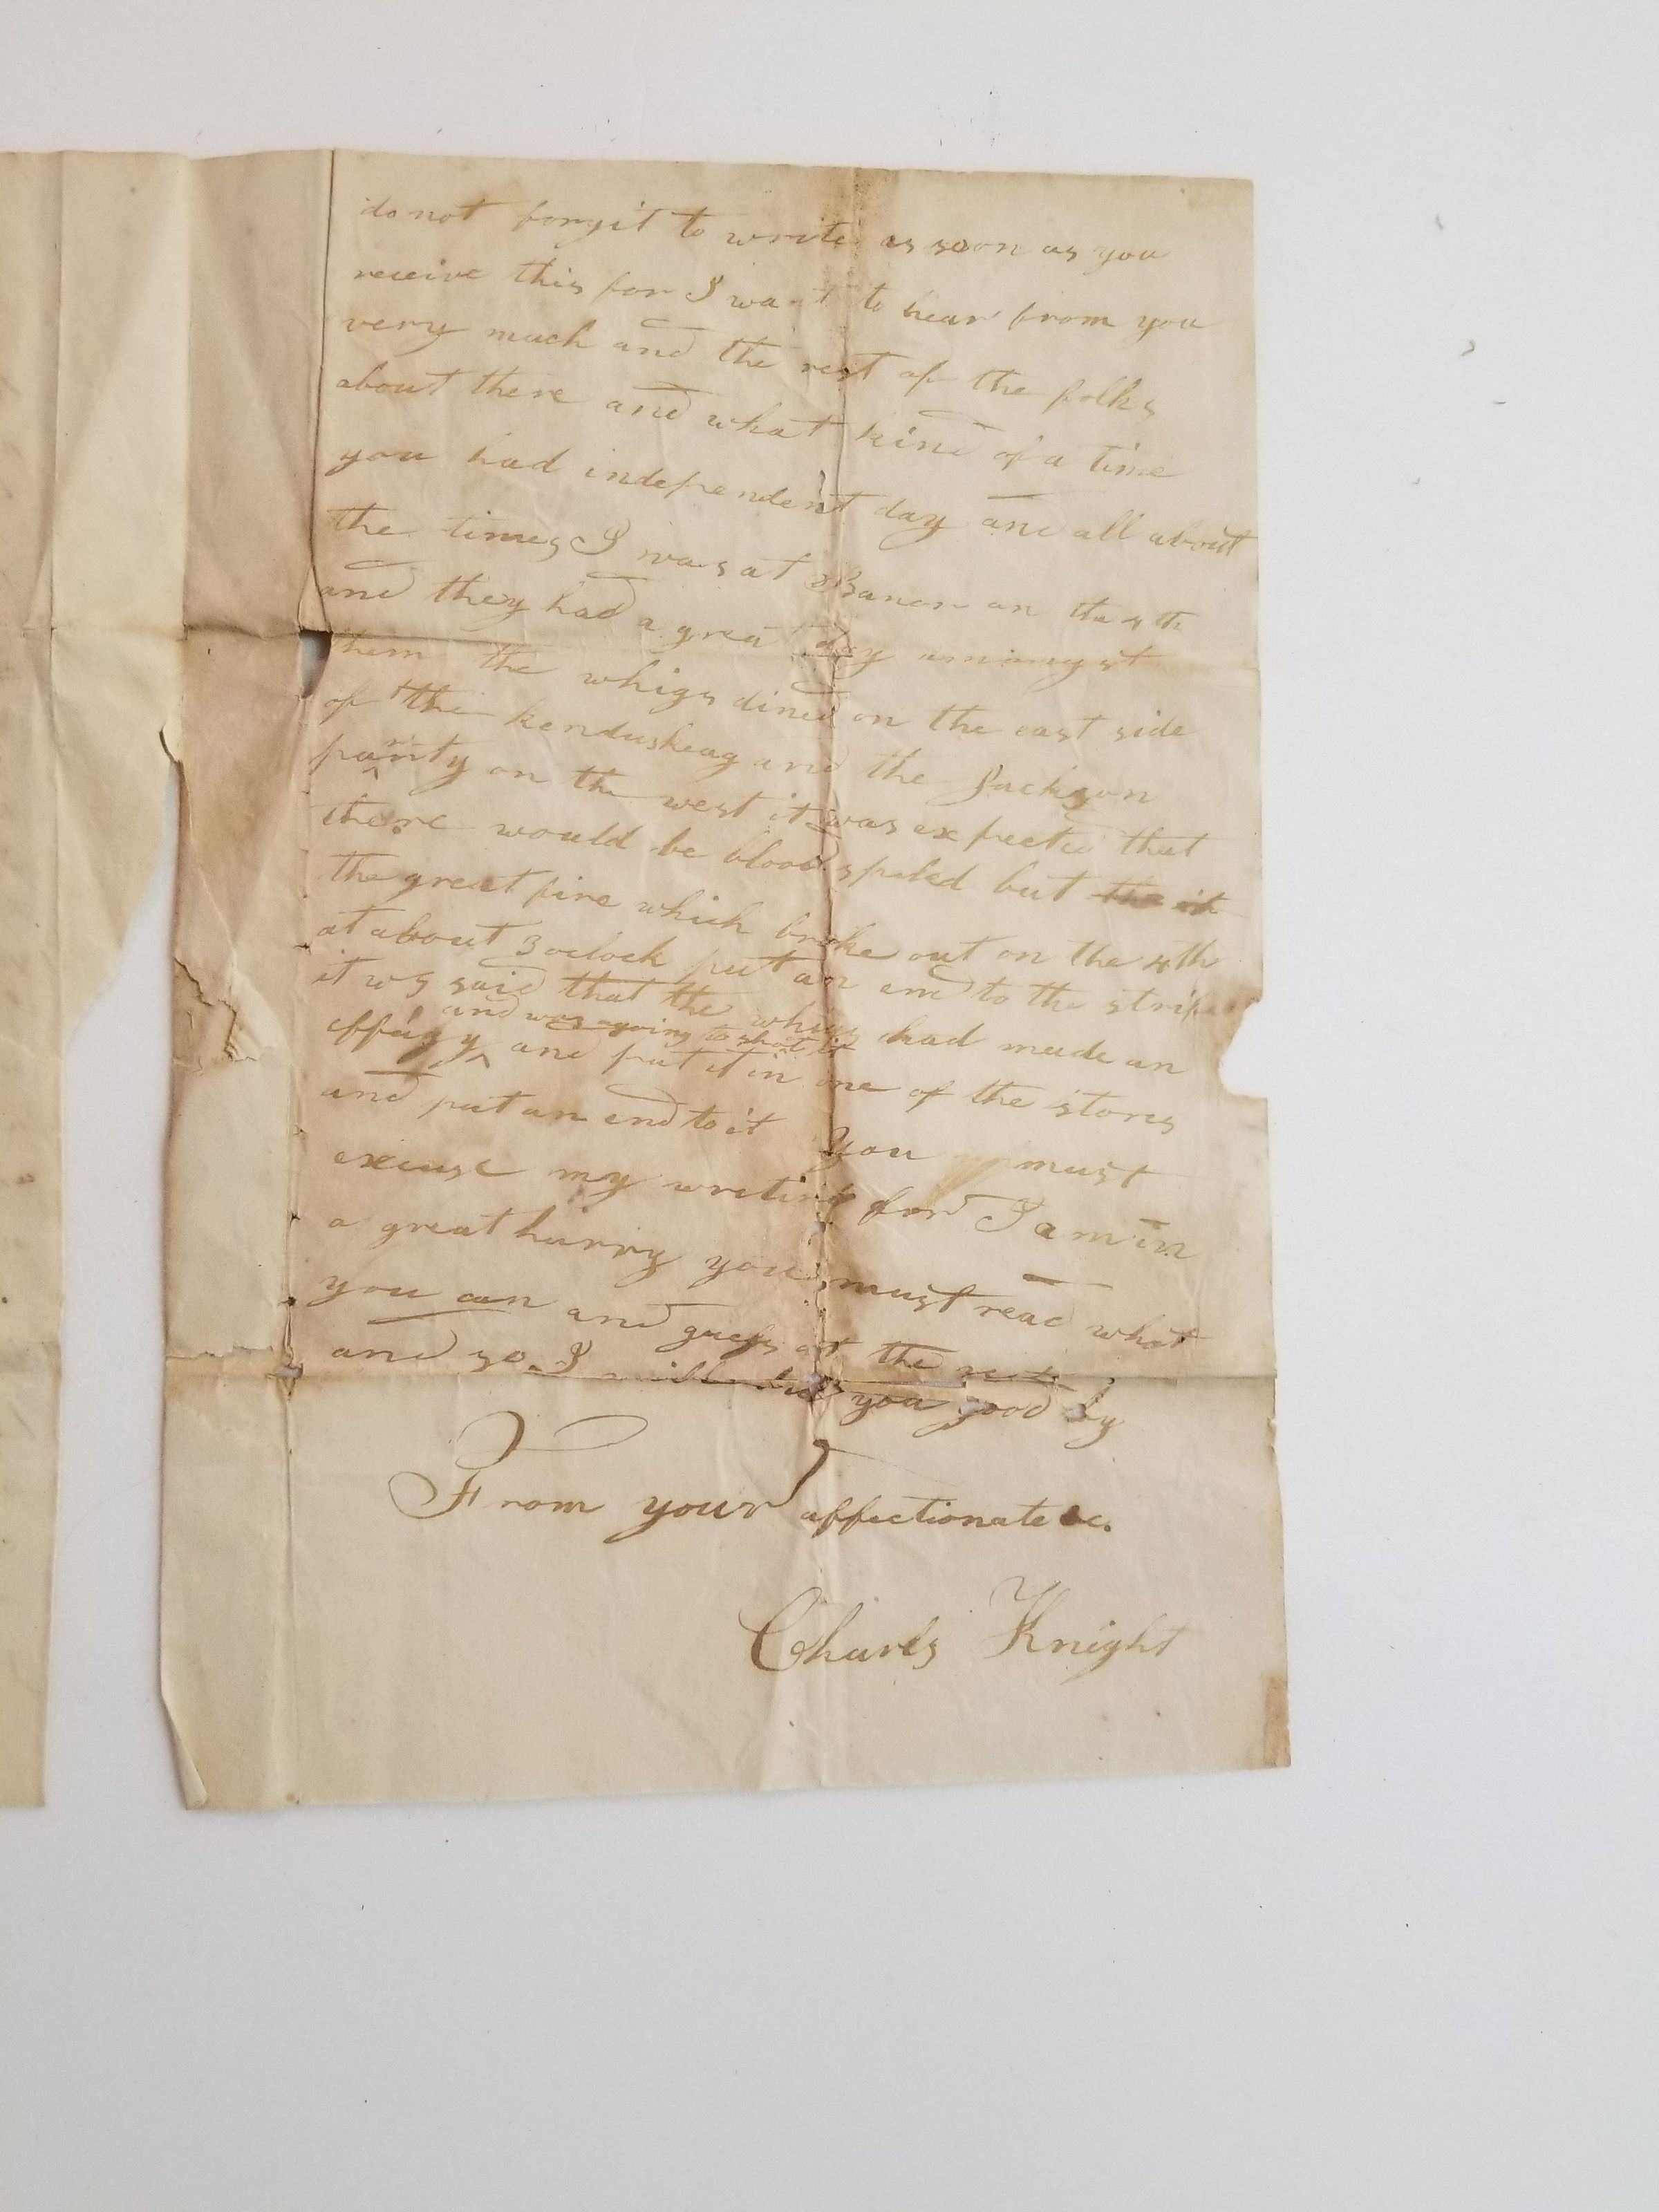 do not forgit to write as soon as you
receive this for I want to hear from you
very much and the rest of the folks
about there and what kind of a time
you had independent day and all about
the times I was at Banor on the 4th
and they had a great day amongst
them the whigs dined on the east side
of the kenduskeag and the Jackson
party on the west it was expected that
there would be blood spiled but the it
the great fire which broke out on the 4th
at about 3 oclock put an end to the strife
it ws said that the whigs had made an
and was agoing to shot it
effigy ^ and put it in one of the stores
and put an end to it you must
excuse my writing for I am in
a great hurry you must read what
you can and guess at the rest
and so I will bid you good by
From your affectionate &c.
Charls Knight